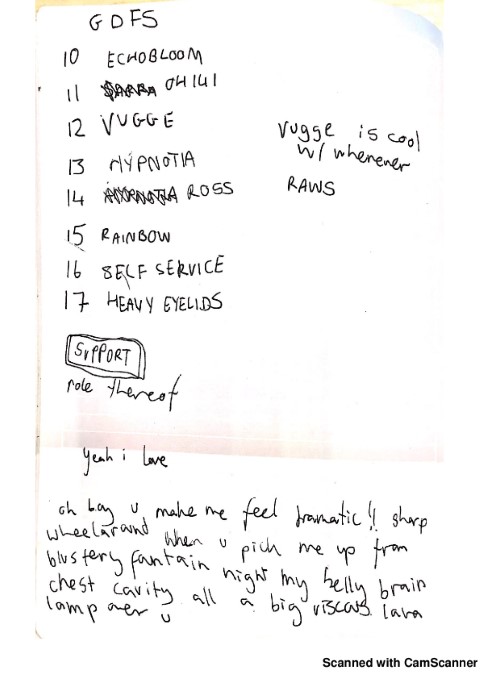 GDFS
10 ECHOBLOOM
11 OHIUI
12 VUGGE
13 HYPNOTIA
14 ROSS
15 RAINBOW
16 SELF SERVICE
17 HEAVY EYELIDS
vugge is cool
w/ whenever
RAWS
SUPPORT
role thereof
yeah i love
oh boy u make me feel dramatic!! sharp
wheelaround when u pick me up from
blustery fountain night my belly brain
chest cavity all a big viscous lava
lamp over u
Scanned with CamScanner